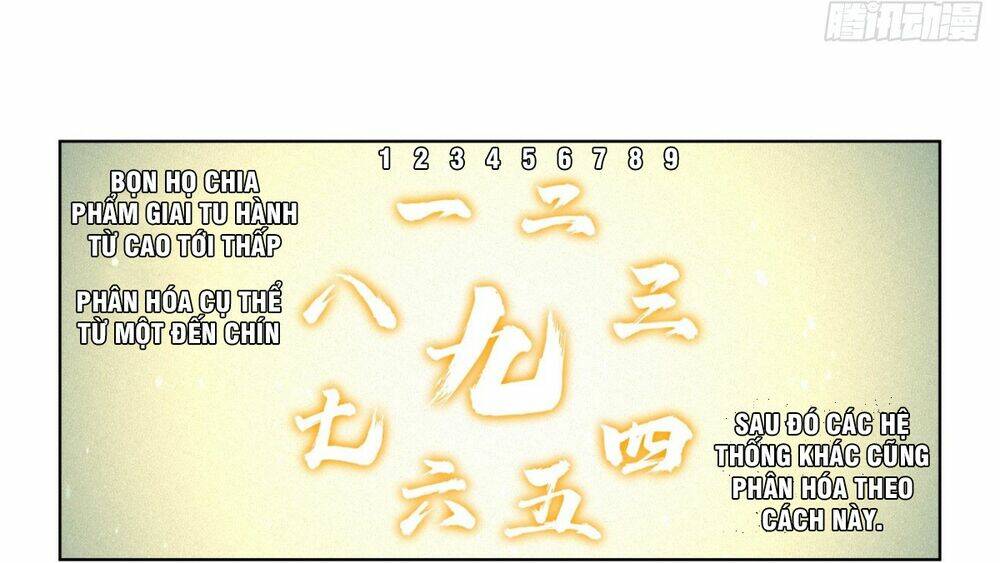 腾讯动漫
1 2 3 4 5 6 7 8 9
BỌN HỌ CHIA
PHẨM GIAI TU HÀNH
TỪ CAO TỚI THẤP
PHÂN HÓA CỤ THỂ
TỪ MỘT ĐẾN CHÍN
一 二
八 三
九
七 四
六 五
SAU ĐÓ CÁC HỆ
THỐNG KHÁC CŨNG
PHÂN HÓA THEO
CÁCH NÀY.